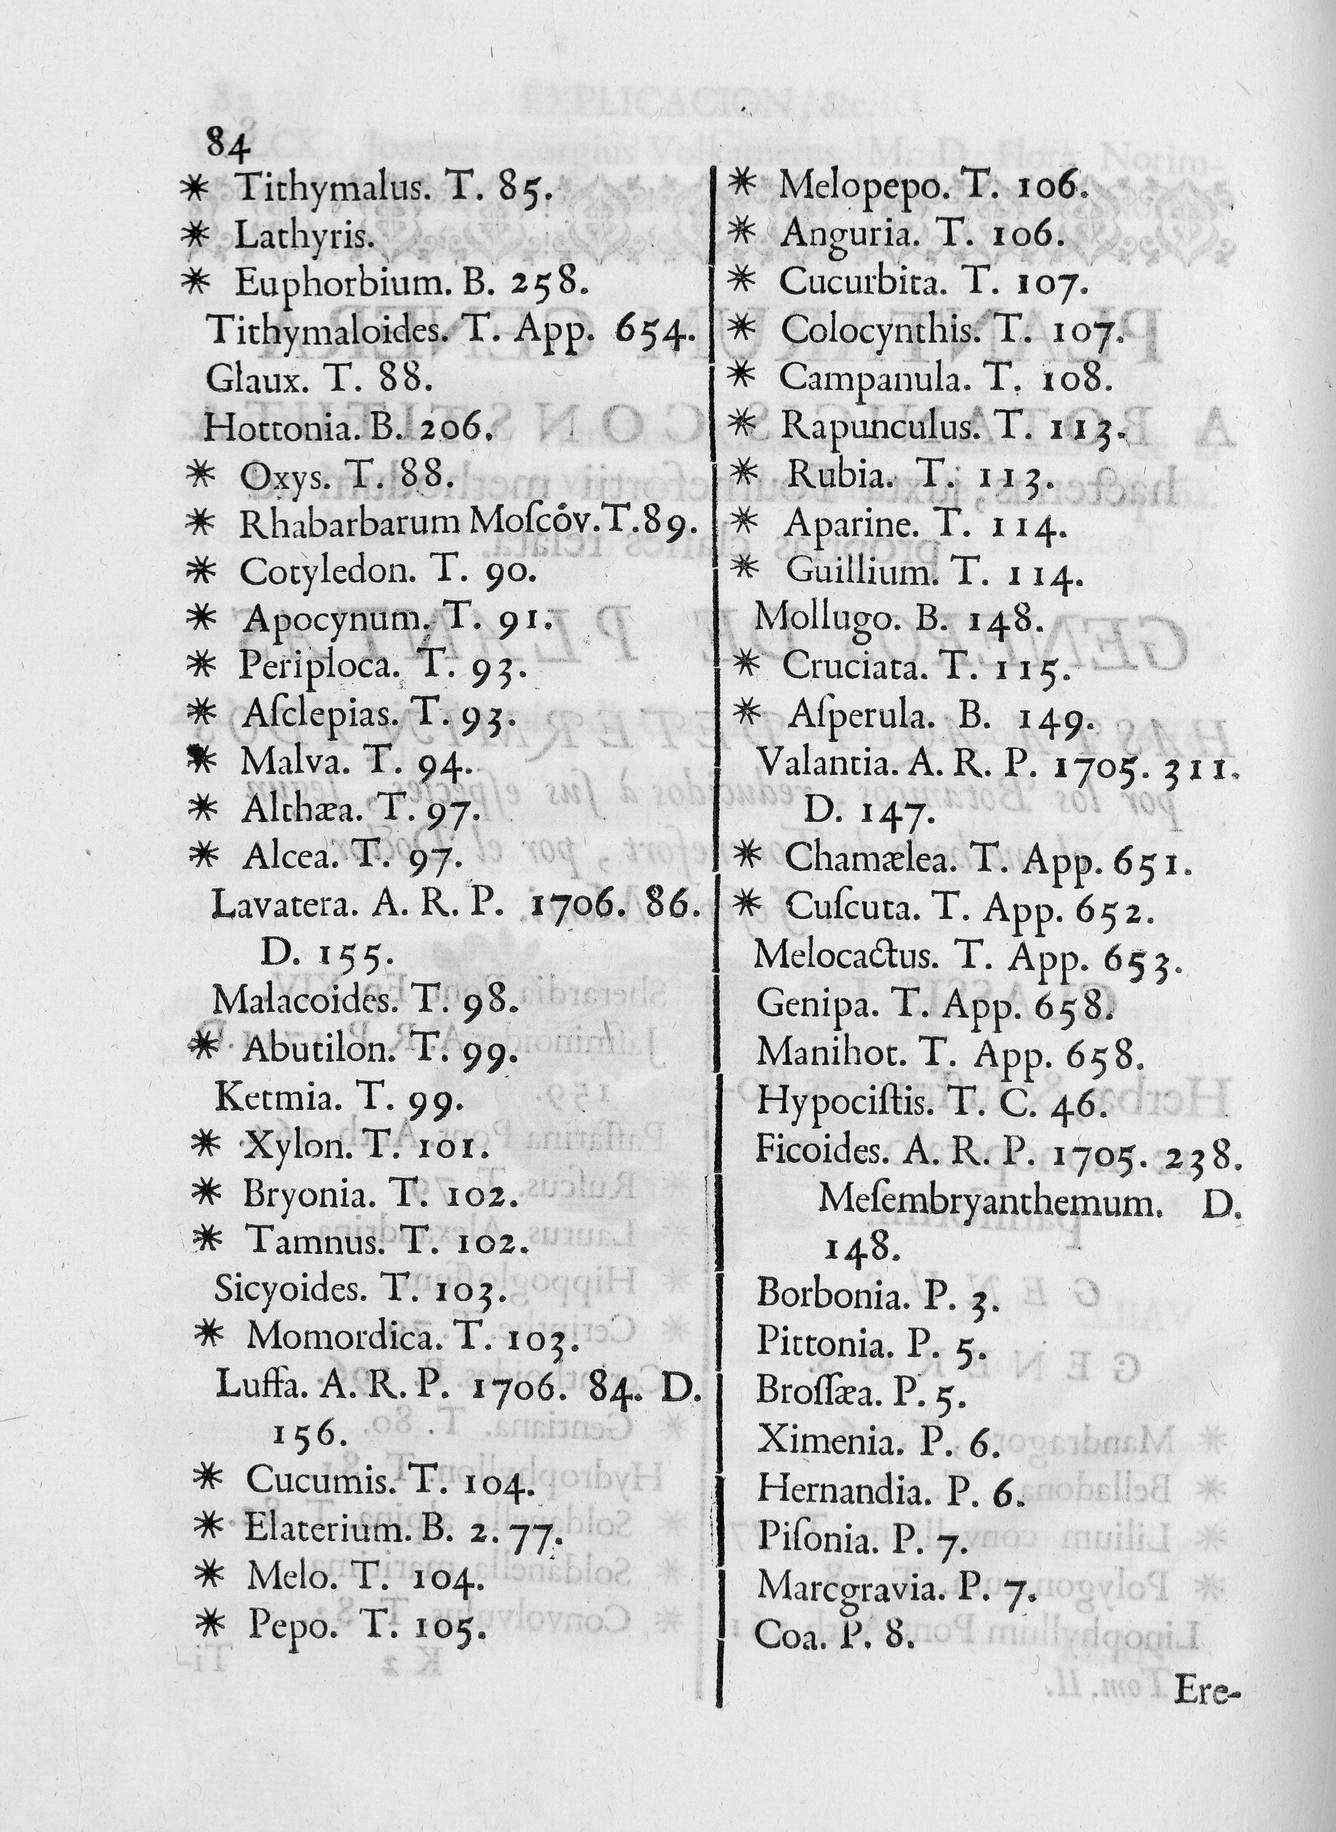 84
* Tithymalus. T. 85.
* Lathyris.
* Euphorbium. B. 258.
Tithymaloides. T. App. 654.
Glaux. T. 88.
Hottonia. B. 206.
* Oxys. T. 88.
* Rhabarbarum Moſcóv. T. 89.
* Cotyledon. T. 90.
* Apocynum. T. 91.
* Periploca. T. 93.
* Aſclepias. T. 93.
* Malva. T. 94.
* Althæa. T. 97.
* Alcea. T. 97.
Lavatera. A. R. P. 1706. 86.
D. 155.
Malacoides. T. 98.
* Abutilon. T. 99.
Ketmia. T. 99.
* Xylon. T. 101.
* Bryonia. T. 102.
* Tamnus. T. 102.
Sicyoides. T. 103.
* Momordica. T. 103.
Luffa. A. R. P. 1706. 84. D.
156.
* Cucumis. T. 104.
* Elaterium. B. 2. 77.
* Melo. T. 104.
* Pepo. T. 105.
* Melopepo. T. 106.
* Anguria. T. 106.
* Cucurbita. T. 107.
* Colocynthis. T. 107.
* Campanula. T. 108.
* Rapunculus. T. 113.
* Rubia. T. 113.
* Aparine. T. 114.
* Guillium. T. 114.
Mollugo. B. 148.
* Cruciata. T. 115.
* Aſperula. B. 149.
Valantia. A. R. P. 1705. 311.
D. 147.
* Chamælea. T. App. 651.
* Cuſcuta. T. App. 652.
Melocactus. T. App. 653.
Genipa. T. App. 658.
Manihot. T. App. 658.
Hypociſtis. T. C. 46.
Ficoides. A. R. P. 1705. 238.
Meſembryanthemum. D.
148.
Borbonia. P. 3.
Pittonia. P. 5.
Broſſæa. P. 5.
Ximenia. P. 6.
Hernandia. P. 6.
Piſonia. P. 7.
Marcgravia. P. 7.
Coa. P. 8.
Ere-